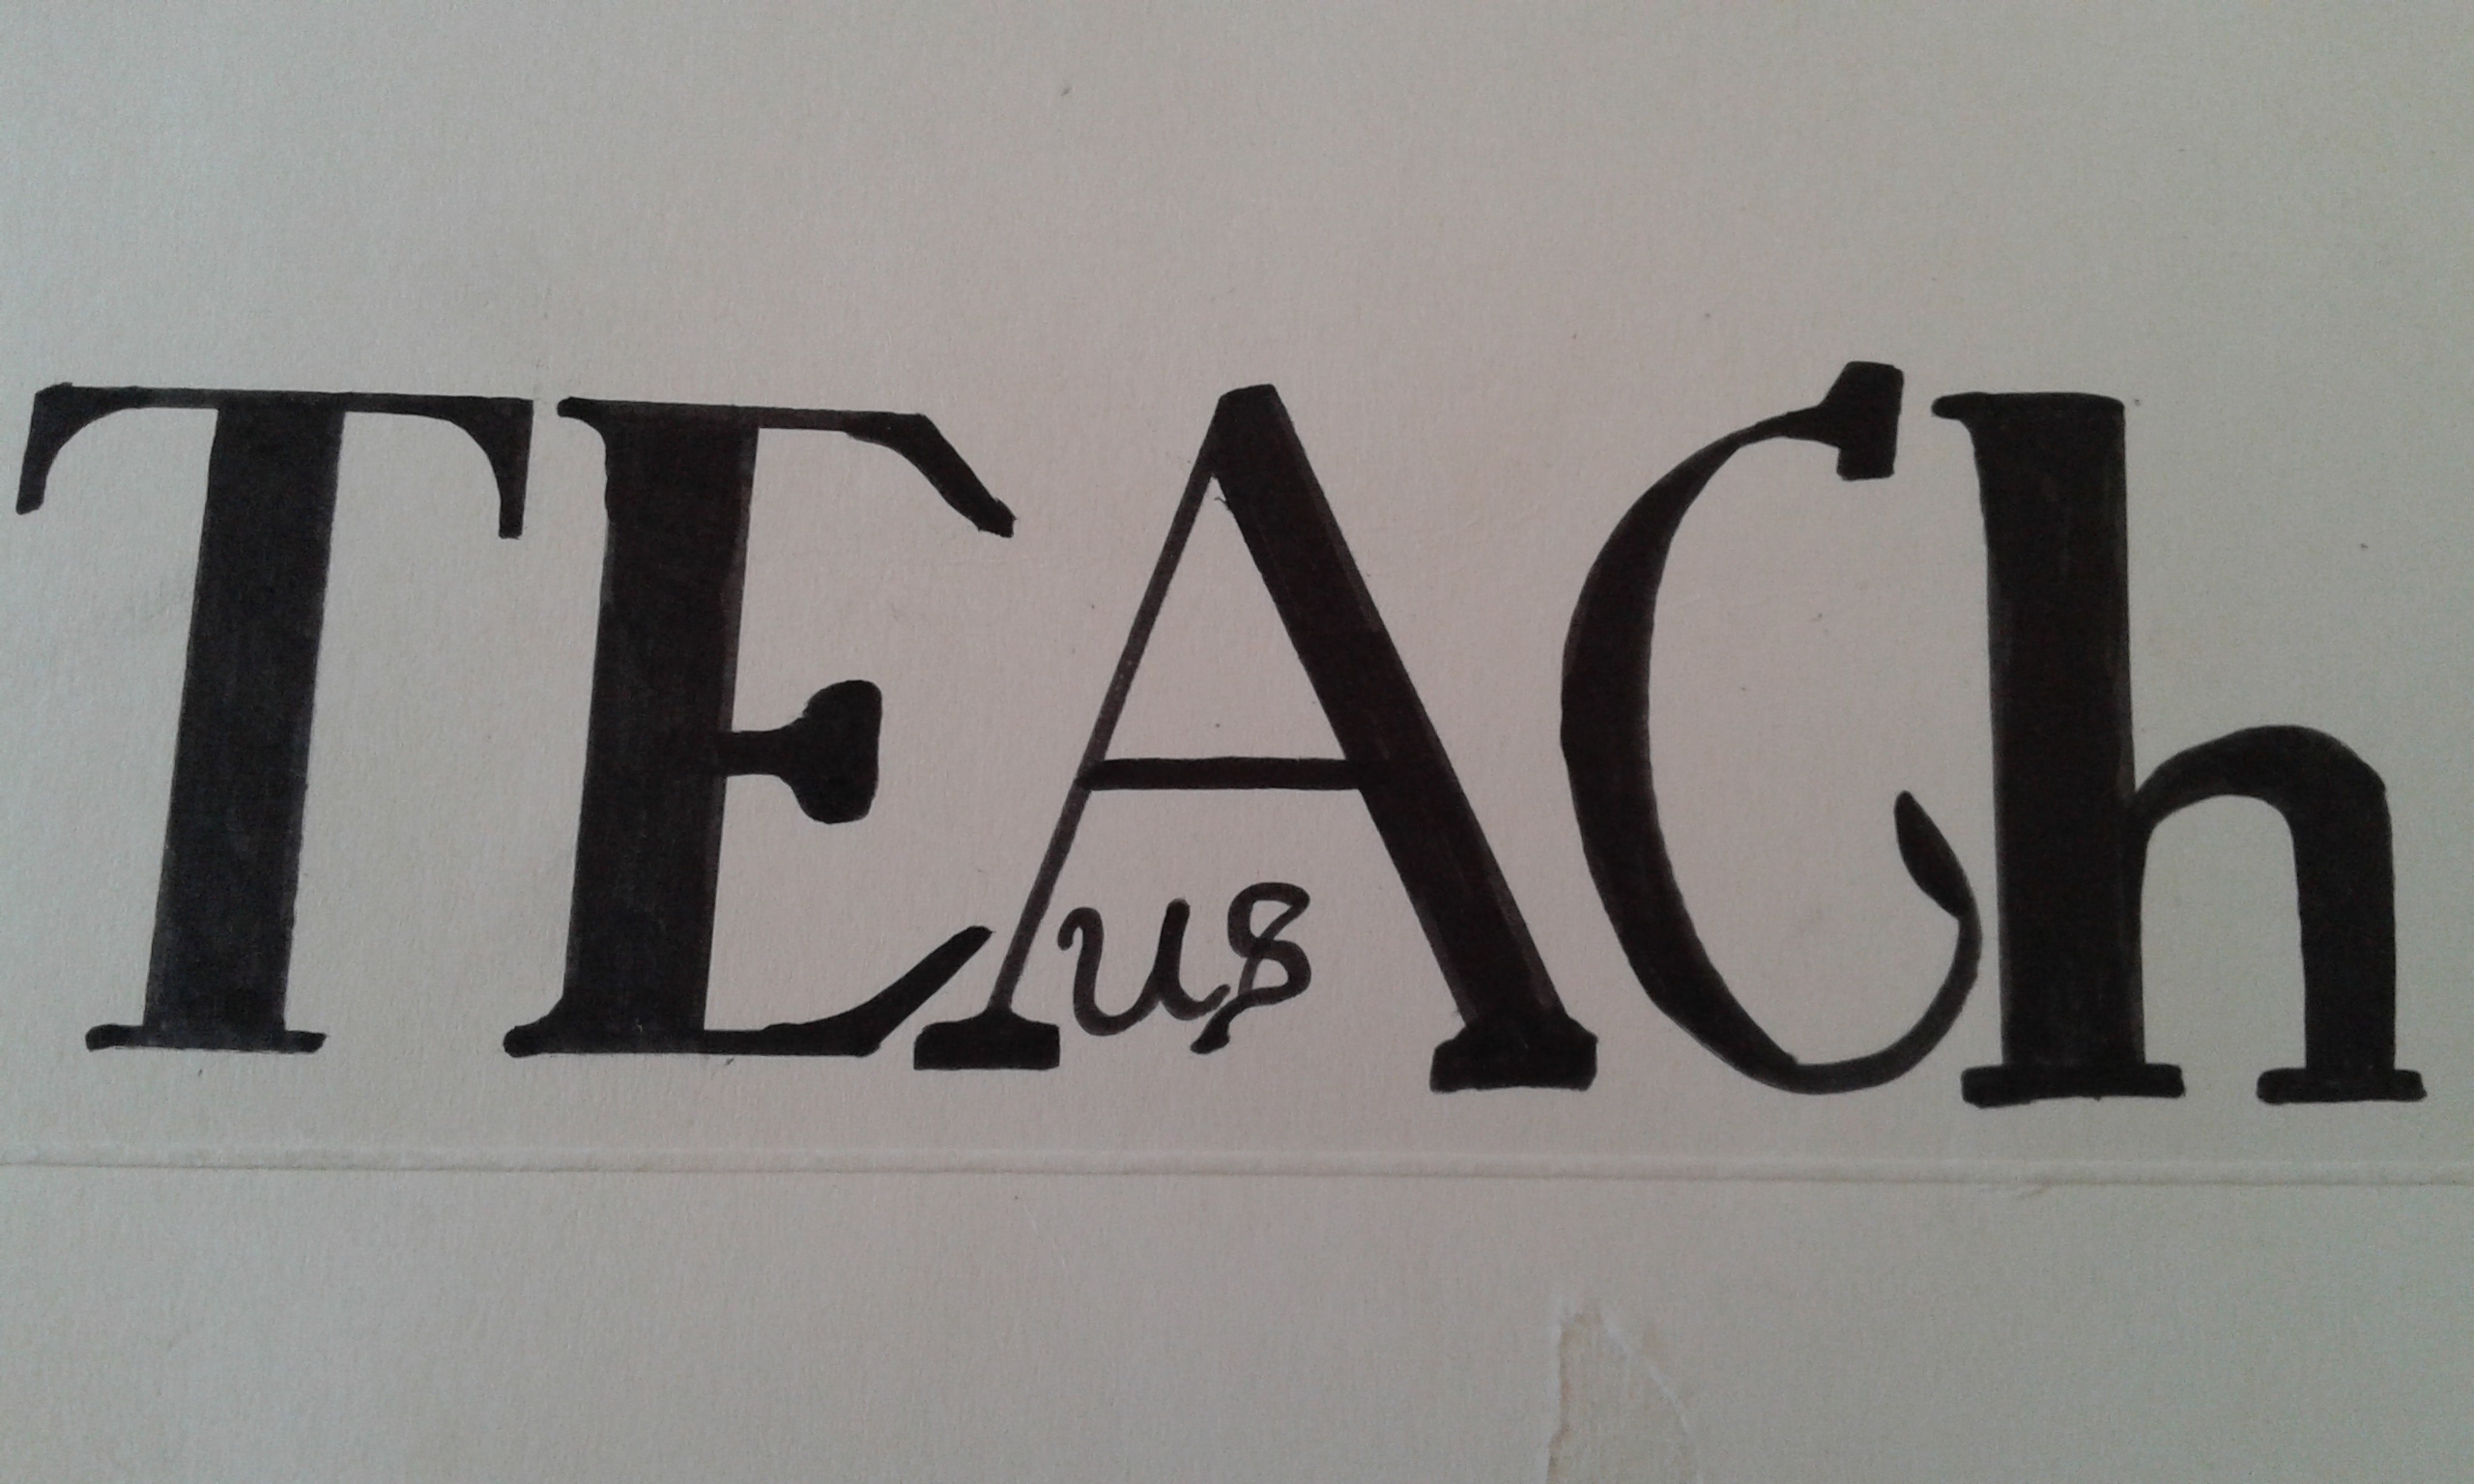 TEACh
us